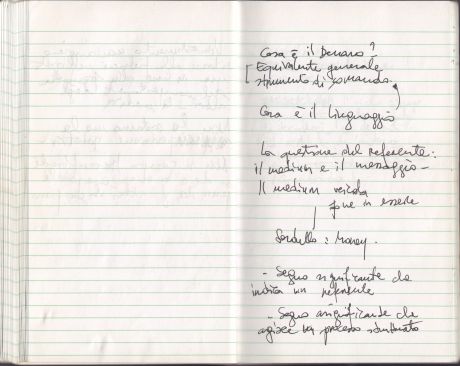 Cosa è il Denaro?
Equivalente generale
strumento di comando.
Cosa è il linguaggio
La questione del referente:
il medium e il messaggio -
Il medium veicola
pone in essere
: Money.
- Segno significante che
indica un referente
- Segno significante che
agisce un processo strutturato